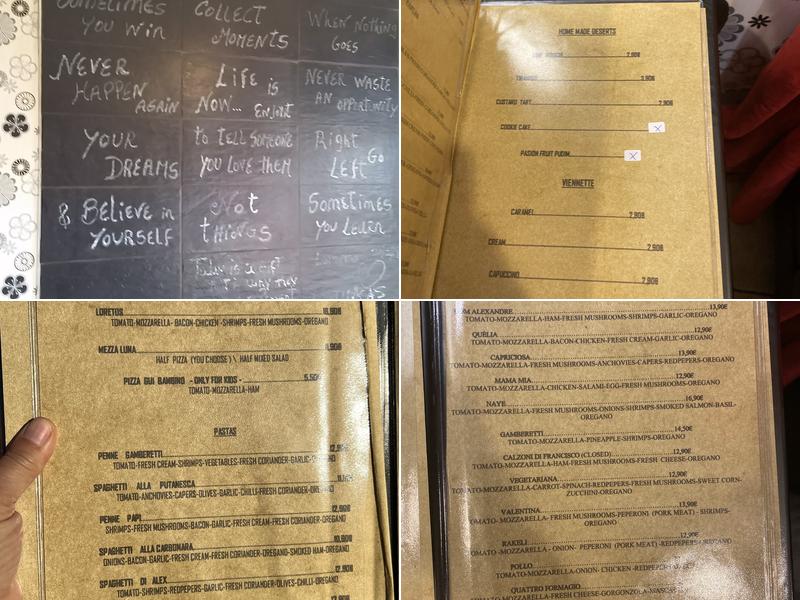 SOMETIMES
YOU WIN
NEVER
HAPPEN
AGAIN
YOUR
DREAMS
& BELIEVE in
YOURSELF
COLLECT
MOMENTS
LiFE is
NOW... ENJOY
to tELL SOMEONE
YOU LOVE tHEM
Not
tHiNGS
WHEN NOTHING
GOES
NEVER WASTE
AN OPPORTUNITY
Right
LEFT GO
SOMETIMES
YOU
HOME MADE DESERTS
2,90€
3,90€
CUSTARD TART 2,90€
COOKIE CAKE X
PASION FRUIT PUDIM X
VIENNETTE
CARAMEL 2,90€
CREAM 2,90€
CAPUCCINO 2,90€
LORETOS
TOMATO-MOZZARELLA- BACON-CHICKEN -SHRIMPS-FRESH MUSHROOMS-OREGANO
MEZZA LUNA
HALF PIZZA (YOU CHOOSE) \ HALF MIXED SALAD
PIZZA GUI BAMBINO -ONLY FOR KIDS - 5,50€
TOMATO-MOZZARELLA-HAM
PASTAS
PENNE GAMBERETTI
TOMATO-FRESH CREAM-SHRIMPS-VEGETABLES-FRESH CORIANDER-GARLIC
SPAGHETTI ALLA PUTANESCA
TOMATO-ANCHOVIES-CAPERS-OLIVES-GARLIC-CHILLI-FRESH CORIANDER
PENNE PAPI
SHRIMPS-FRESH MUSHROOMS-BACON-GARLIC-FRESH CREAM-FRESH CORIANDER-OREGANO
SPAGHETTI ALLA CARBONARA
ONIONS-BACON-GARLIC-FRESH CREAM-FRESH CORIANDER-OREGANO-SMOKED HAM-OREGANO
SPAGHETTI DI ALEX
TOMATO-SHRIMPS-REDPEPERS-GARLIC-FRESH CORIANDER-OLIVES-CHILLI-OREGANO
ALEXANDRE 13,90€
TOMATO-MOZZARELLA-HAM-FRESH MUSHROOMS-SHRIMPS-GARLIC-OREGANO
QUÉLIA 12,90€
TOMATO-MOZZARELLA-BACON-CHICKEN-FRESH CREAM-GARLIC-OREGANO
CAPRICIOSA 13,90€
TOMATO-MOZZARELLA-FRESH MUSHROOMS-ANCHOVIES-CAPERS-REDPEPERS-OREGANO
MAMA MIA 12,90€
TOMATO-MOZZARELLA-CHICKEN-SALAMI-EGG-FRESH MUSHROOMS-OREGANO
NAYE 16,90€
TOMATO-MOZZARELLA-FRESH MUSHROOMS-ONIONS-SHRIMPS-SMOKED SALMON-BASIL-
OREGANO
GAMBERETTI 14,50€
TOMATO-MOZZARELLA-PINEAPPLE-SHRIMPS-OREGANO
CALZONI DI FRANCISCO (CLOSED) 12,90€
TOMATO-MOZZARELLA-HAM-FRESH MUSHROOMS-FRESH CHEESE-OREGANO
VEGETARIANA 12,90€
TOMATO-MOZZARELLA-CARROT-SPINACH-REDPEPERS-FRESH MUSHROOMS-SWEET CORN-
ZUCCHINI-OREGANO
VALENTINA 13,90€
TOMATO-MOZZARELLA- FRESH MUSHROOMS-PEPERONI (PORK MEAT) - SHRIMPS-
OREGANO
RAKELI 12,90€
TOMATO-MOZZARELLA - ONION- PEPERONI (PORK MEAT) -REDPEPERS-OREGANO
POLLO
TOMATO-MOZZARELLA-ONION- CHICKEN
QUATTRO FORMAGIO
TOMATO-MOZZARELLA-FRESH CHEESE-GORGONZOLA